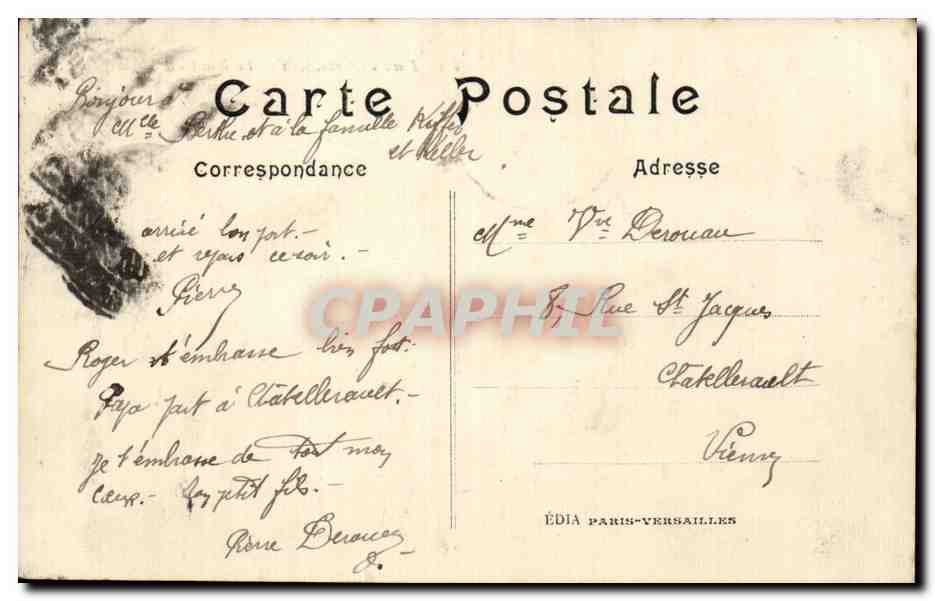 Carte Postale
Bonjour à
Melle Berthe et à la famille
et Keller
Correspondance
arrivé bon port. -
et repars ce soir. -
Pierre
Roger t'embrasse bien fort.
Papa part à Châtellerault. -
Je t'embrasse de tout mon
cœur. - Ton ptit fils. -
Pierre
Adresse
Mme Vve Derouau
8, Rue St Jacques
Châtellerault
Vienne
EDIA PARIS-VERSAILLES
CPAPHIL